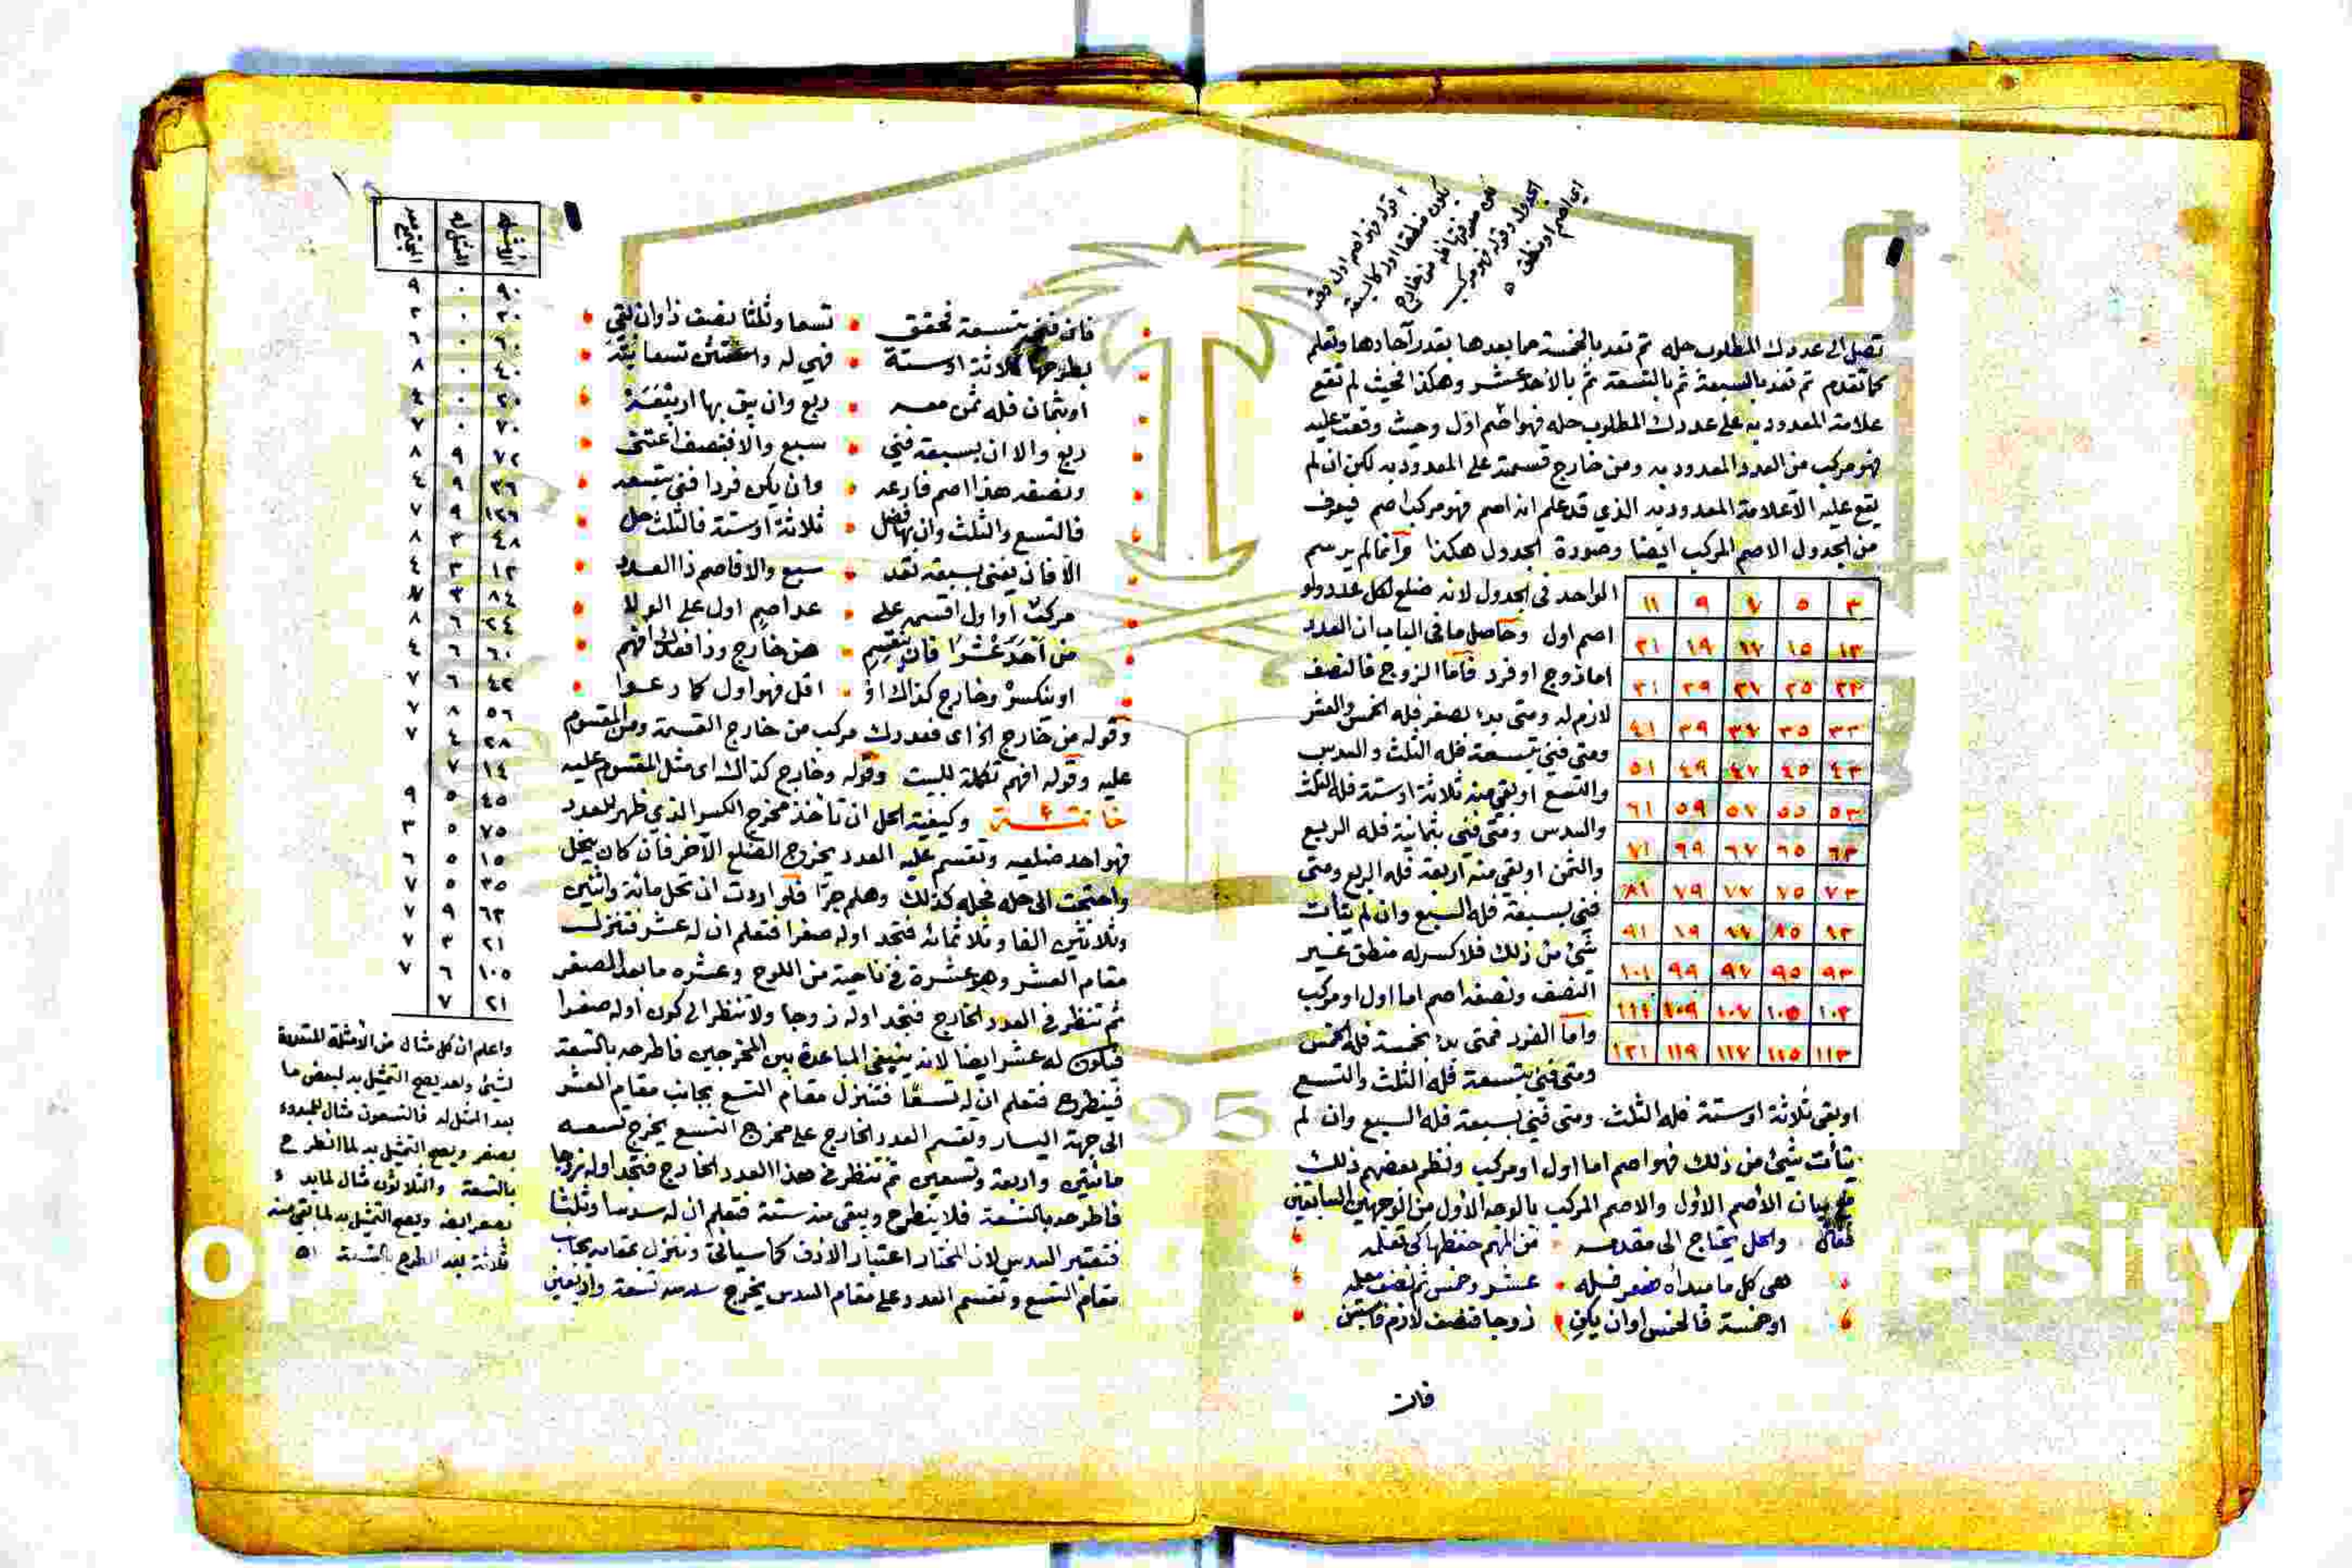 تصل الى عددك المطلوب حله ثم تعد بالخمسة مما بعدها بقدر آحادها وتعلم
كما تقدم ثم تعد بالسبعة ثم بالتسعة ثم بالأحد عشر وهكذا فحيث لم تقع
علامة المعدود به على عددك المطلوب حله فهو اصم اول وحيث وقعت عليه
فهو مركب من العدد المعدود به ومن خارج قسمته على المعدود به لكن ان لم
يقع عليه الا علامة المعدود به الذي قد علم انه اصم فهو مركب اصم فيعرف
من الجدول الاصم المركب ايضا وصورة الجدول هكذا وانما لم يرسم
الواحد في الجدول لانه ضلع لكل عدد ولو
اصم اول وحاصل ما في الباب ان العدد
اما زوج او فرد فاما الزوج فالنصف
لازم له ومتى بدئ بصفر فله الخمس والعشر
ومتى فني بتسعة فله الثلث والسدس
والتسع او بقي منه ثلاثة او ستة فله الثلث
والسدس ومتى فني بثمانية فله الربع
والثمن او بقي منه اربعة فله الربع ومتى
فني بسبعة فله السبع وان لم يتأت
شئ من ذلك فلا كسر له منطق غير
النصف ونصفه اصم اما اول او مركب
واما الفرد فمتى بدئ بخمسة فله الخمس
ومتى فني بتسعة فله الثلث والتسع
٣ ٥ ٧ ٩ ١١
١٣ ١٥ ١٧ ١٩ ٢١
٢٣ ٢٥ ٢٧ ٢٩ ٣١
٣٣ ٣٥ ٣٧ ٣٩ ٤١
٤٣ ٤٥ ٤٧ ٤٩ ٥١
٥٣ ٥٥ ٥٧ ٥٩ ٦١
٦٣ ٦٥ ٦٧ ٦٩ ٧١
٧٣ ٧٥ ٧٧ ٧٩ ٨١
٨٣ ٨٥ ٨٧ ٨٩ ٩١
٩٣ ٩٥ ٩٧ ٩٩ ١٠١
١٠٣ ١٠٥ ١٠٧ ١٠٩ ١١١
١١٣ ١١٥ ١١٧ ١١٩ ١٢١
او بقي ثلاثة او ستة فله الثلث ومتى فني بسبعة فله السبع وان لم
يتأت شئ من ذلك فهو اصم اما اول او مركب ونظم بعضهم ذلك
مع بيان الأصم الأول والاصم المركب بالوجه الأول من الوجهين السابقين
فقال والحل يحتاج الى مقدمه من المهم حفظها كي تعلمه
هي كل ما مبدأه صفر فله عشر وخمس ثم نصف
او خمسة فالخمس او ان يكن زوجا فنصف لازم
فان
فان فني بتسعة فحقق تسعا وثلثا نصف ذا وان بقي
بطرحها ثلاثة او ستة فهي له
او بثمان فله ثمن معه ربع وان يبق بها اربعة
ربع والا ان بسبعة فني سبع والا فبنصف اعتني
ونصفه هذا اصم فارعه وان يكن فردا فني بتسعه
فالتسع والثلث وان يفضل ثلاثة او ستة فالثلث حل
الا فان يفنى بسبعة تعد سبع والا فاصم ذا العدد
مركب او اول اقسمن على عد اصم اول على الولا
من احد عشرا فان ينقسم من خارج وذا فعدك افهم
او ينكسر وخارج كذاك او اقل فهو اول كما رعوا
وقوله من خارج الخ اي فعددك مركب من خارج القسمة ومن المقسوم
عليه وقوله افهم تكملة للبيت وقوله وخارج كذاك اي مثل المقسوم عليه
خاتمة وكيفية الحل ان تأخذ مخرج الكسر الذي ظهر للعدد
فهو احد ضلعيه وتقسم عليه العدد يخرج الضلع الآخر فان كان ينحل
واحتجت الى حله فحله كذلك وهلم جرا فلو اردت ان تحل مائة واثنين
وثلاثين الفا وثلاثمائة فتجد اوله صفرا فتعلم ان له عشر فتنزل
مقام العشر وهو عشرة في ناحية من اللوح وعشره ما بعد الصفر
ثم تنظر في العدد الخارج فتجد اوله زوجا ولا تنظر الى كون اوله صفرا
فيكون له عشر ايضا لانه ينبغي المباعدة بين المخرجين فاطرحه بالتسعة
فينطرح فتعلم ان له تسعا فتنزل مقام التسع بجانب مقام العشر
الى جهة اليسار وتقسم العدد الخارج على مخرج التسع يخرج تسعه
مائتين واربعة وتسعين ثم تنظر في هذا العدد الخارج فتجد اوله زوجا
فاطرحه بالتسعة فلا ينطرح ويبقى منه ستة فتعلم ان له سدسا وثلثا
فتعتبر السدس لان المختار اعتبار الادق كما سيأتي وتنزل مقامه بجانب
مقام التسع وتقسم العدد على مقام السدس يخرج سدسه تسعة واربعين
٩٠ ٠ ٩
٣٠ ٠ ٣
٦٠ ٠ ٦
٤٠ ٠ ٨
٢٠ ٠ ٤
٧٠ ٠ ٧
٧٢ ٩ ٨
٣٦ ٩ ٤
١٢٦ ٩ ٧
٤٨ ٣ ٨
١٢ ٣ ٤
٨٤ ٣ ٧
٢٤ ٦ ٨
٦٠ ٦ ٤
٤٢ ٦ ٧
٥٦ ٨ ٧
٢٨ ٤ ٧
١٤ ٧
٤٥ ٥ ٩
٧٥ ٥ ٣
١٥ ٥ ٦
٣٥ ٥ ٧
٦٣ ٩ ٧
٢١ ٣ ٧
١٠٥ ٦ ٧
٢١ ٧
واعلم ان كل مثال من الأمثلة المتقدمة
لشيئ واحد يصح التمثيل به لبعض ما
بعد الممثل له فالتسعون مثال للمبدوء
بصفر ويصح التمثيل به لما انطرح
بالتسعة والثلاثون مثال لما بدء
بصفر ايضا ويصح التمثيل به لما بقي منه
ثلاثة بعد الطرح بالتسعة